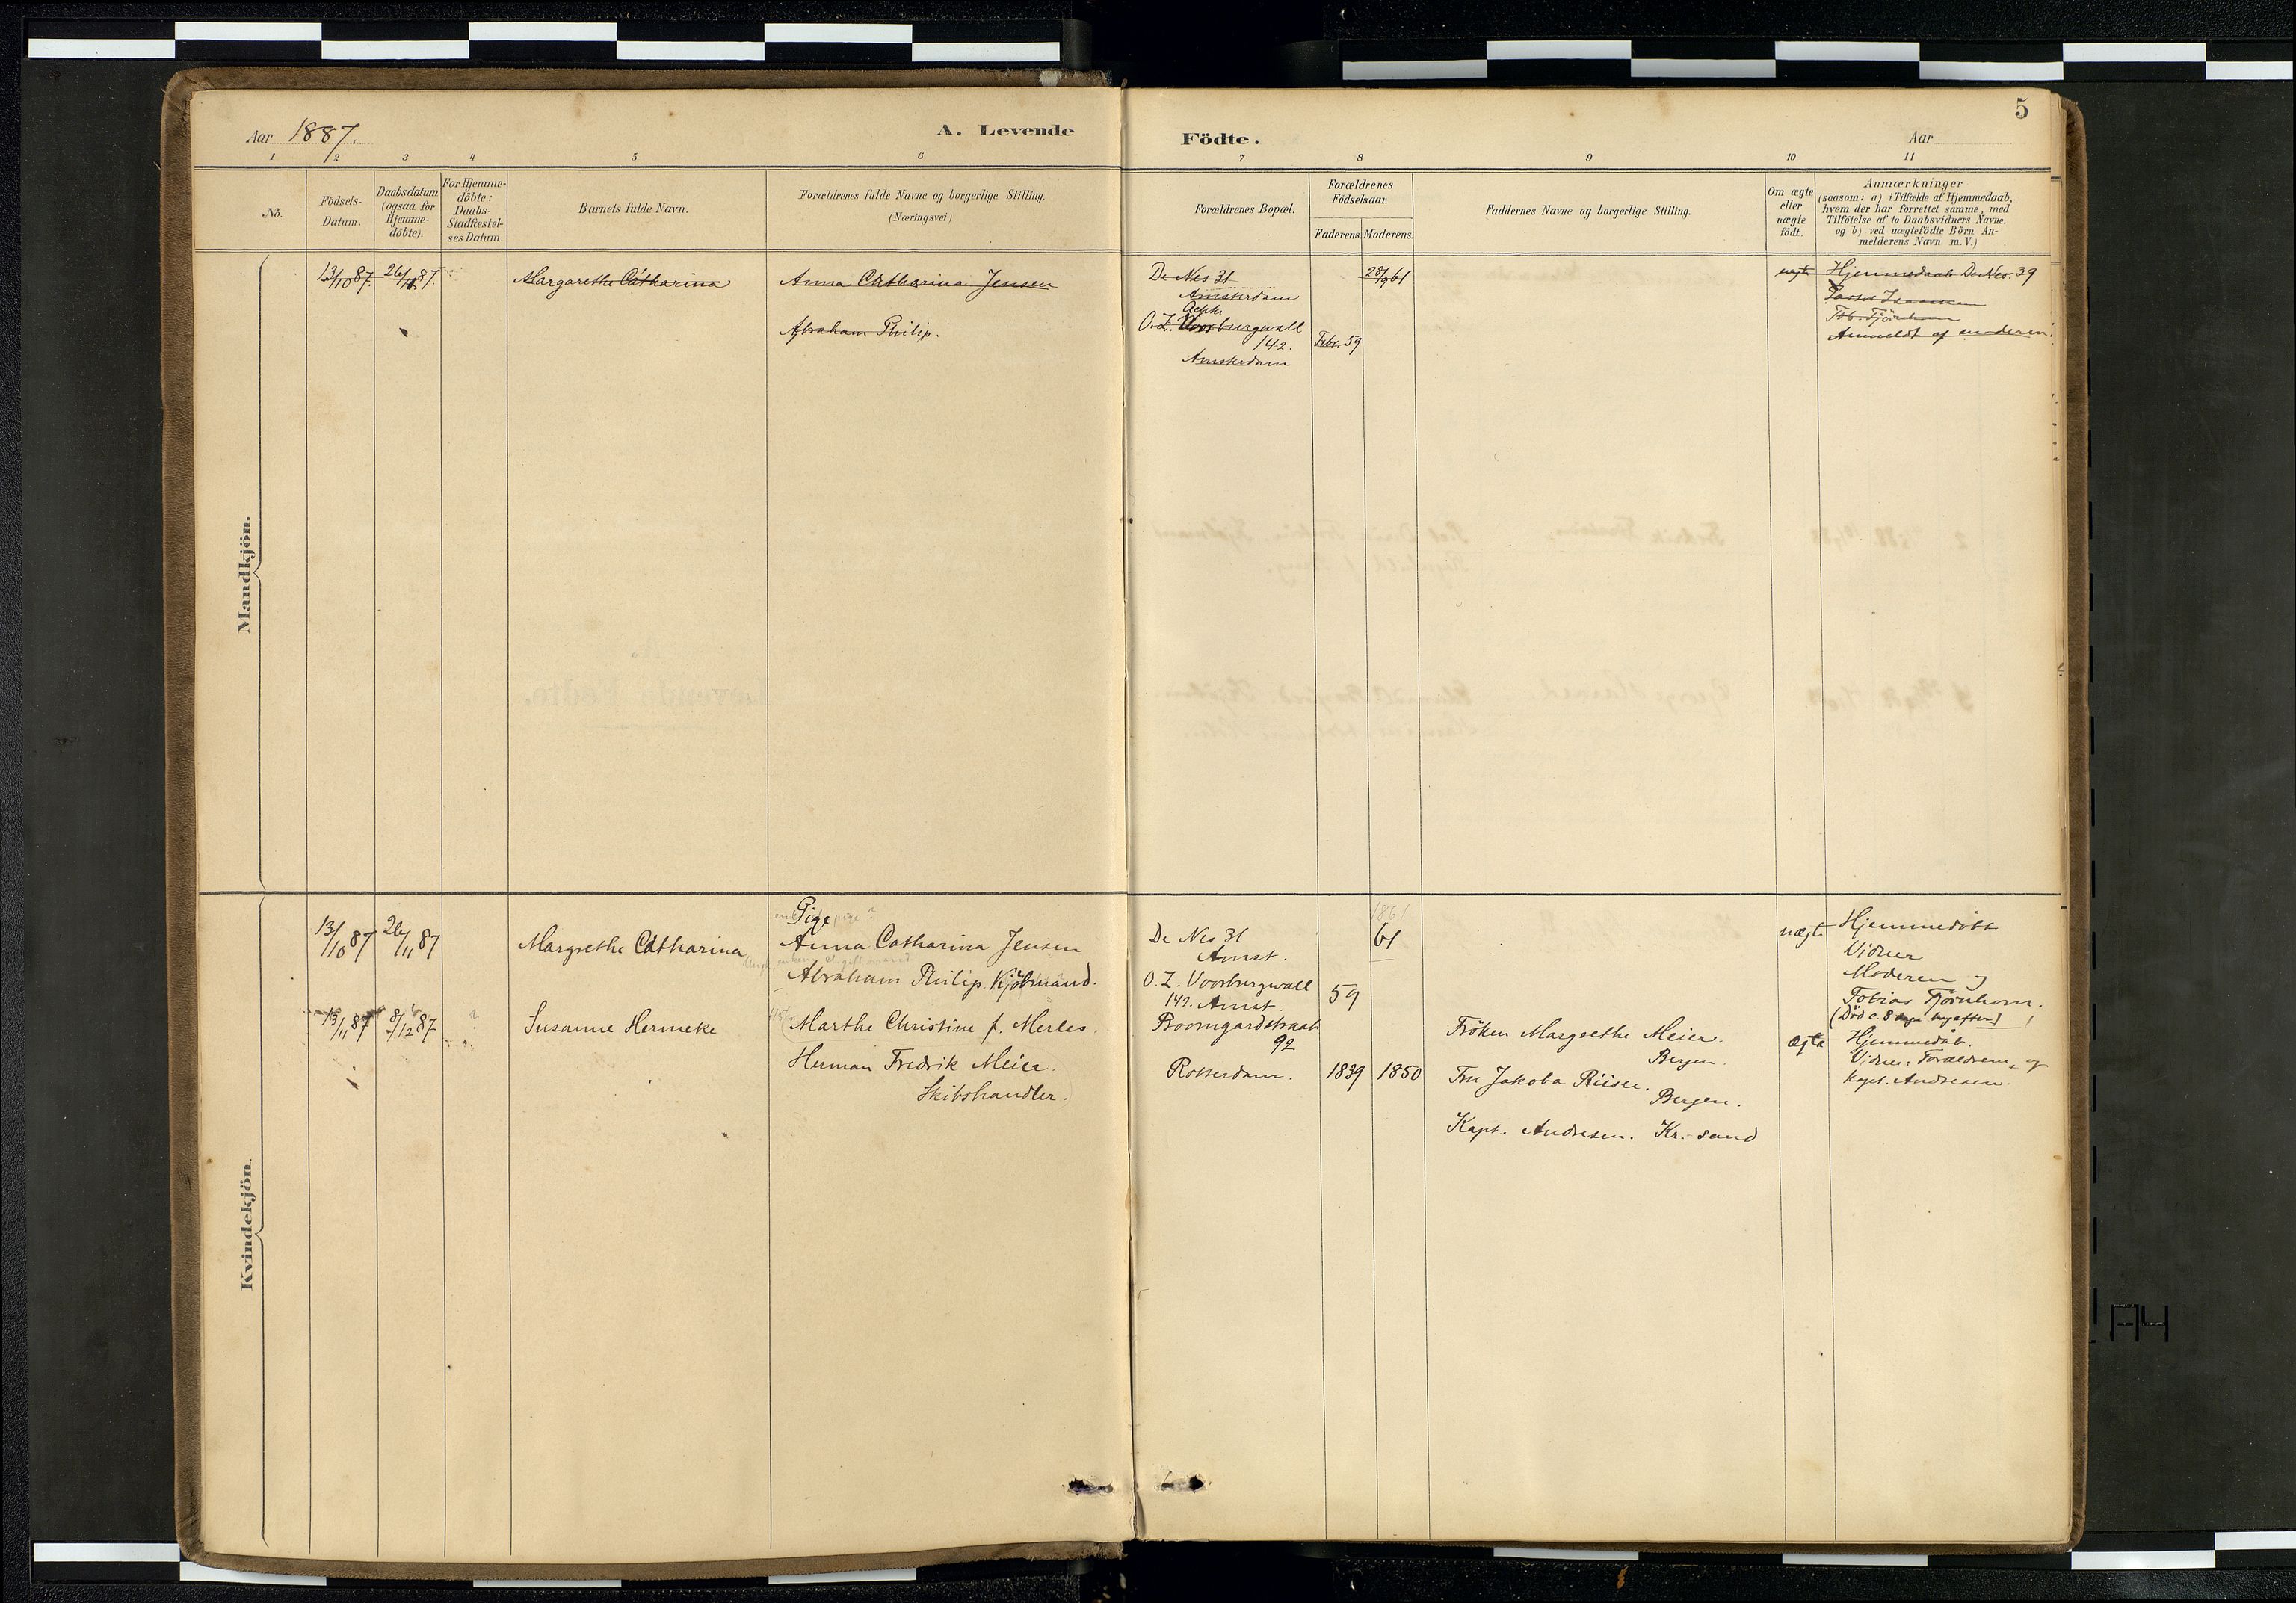 5
Aar 1887.
A. Levende
Födte.
Aar
1 2 3 4 5 6 7 8 9 10 11
No.
Födsels-
Datum.
Daabsdatum
(ogsaa for
Hjemme-
döbte).
For Hjemme-
döbte:
Daabs-
Stadfæstel-
ses Datum.
Barnets fulde Navn.
Forældrenes fulde Navne og borgerlige Stilling.
(Næringsvei.)
Forældrenes Bopæl.
Forældrenes
Födselsaar.
Faderens. Moderens.
Faddernes Navne og borgerlige Stilling.
Om ægte
eller
uægte
födt.
Anmærkninger
(saasom: a) i Tilfælde af Hjemmedaab,
hvem der har forrettet samme, med
Tilföielse af to Daabsvidners Navne.
og b) ved uægtefödte Börn An-
melderens Navn m. V.)
Mandkjön.
13/10 87. 26/11 87. Margarethe Catharina Anna Catharina Jensen De Nes 31 28/9 61 uægte Hjemmedaab De Nes. 39
Amsterdam
Achter
Abraham Philip. O. Z. Voorburgwall
142. Febr. 59
Amsterdam
Tob. Tjörnhom
Anmeldt af
Kvindekjön.
Pige
1861
13/10 87 26/11 87 Margrethe Catharina Anna Catharina Jensen De Nes 31 61 uægt Hjemmedöbt
Amst. Vidner
Abraham Philip. Kjöbmand. O. Z. Voorburgwall 59 Moderen og
142. Amst. Tobias Tjörnhom.
13/11 87 8/12 87 ? Susanne Hermeke Marthe Christine f. Merles. Boomgardstraat Fröken Margrethe Meier. ægte Hjemmedöb.
92 Bergen. Vidner: Forældrene, og
Herman Fredrik Meier. Rotterdam. 1839 1850 Fru Jakoba Riisee. Kapt. Andresen.
Skibshandler. Bergen.
Kapt. Andresen. Kr.-sand